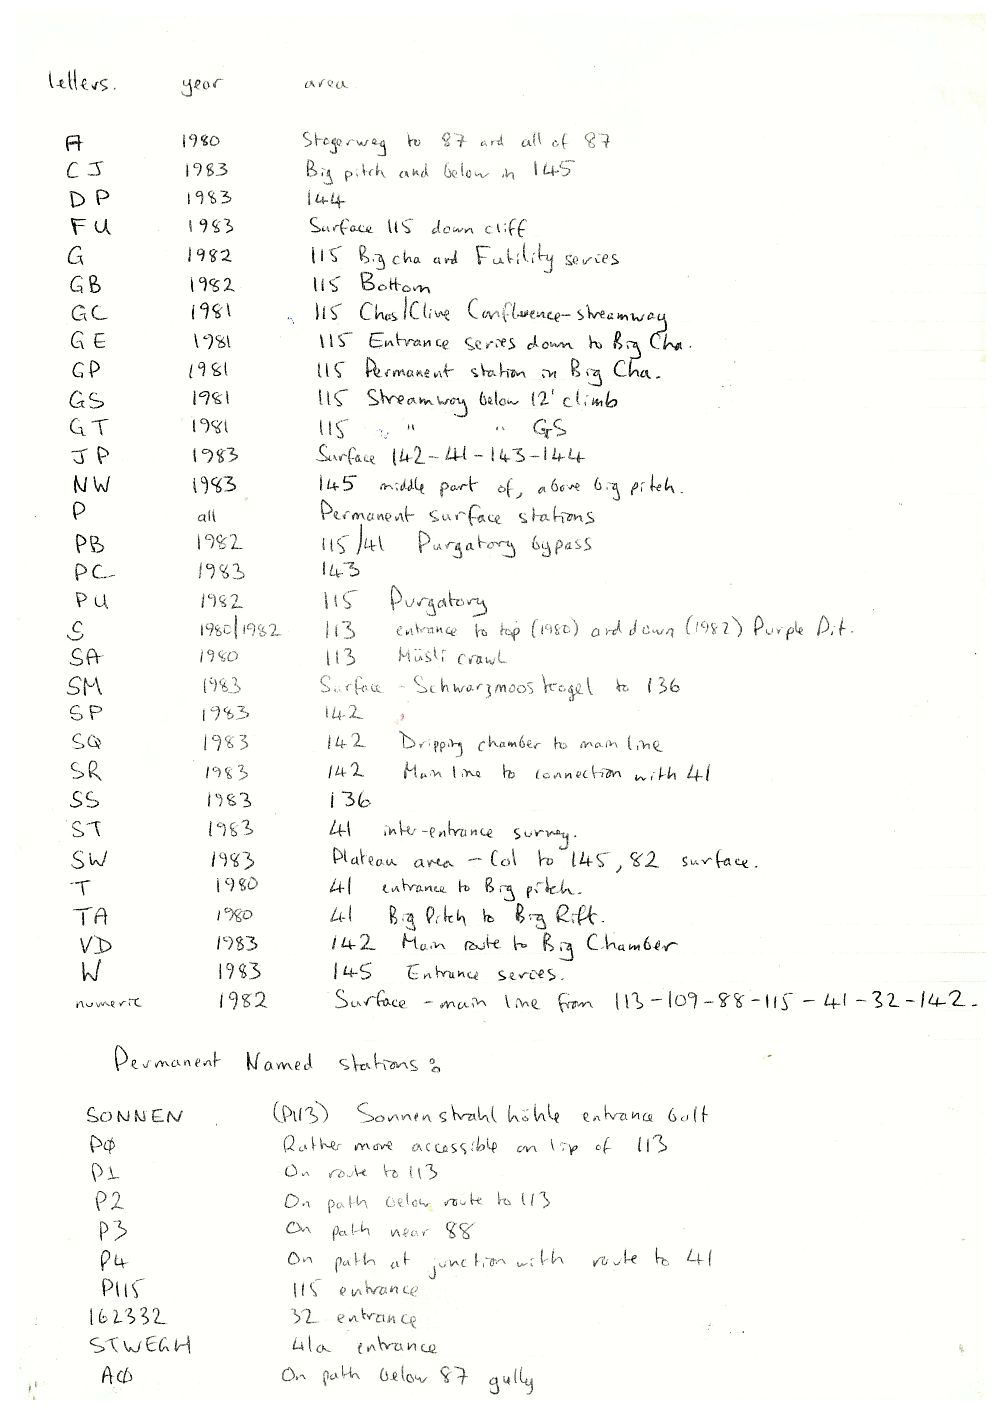 letters. year area
A 1980 Stogerweg to 87 and all of 87
CJ 1983 Big pitch and below in 145
DP 1983 144
FU 1983 Surface 115 down cliff
G 1982 115 Big cha and Futility series
GB 1982 115 Bottom
GC 1981 115 Chas/Clive Confluence-streamway
GE 1981 115 Entrance series down to Big Cha.
GP 1981 115 Permanent station in Big Cha.
GS 1981 115 Streamway below 12' climb
GT 1981 115 " " GS
JP 1983 Surface 142-41-143-144
NW 1983 145 middle part of, above big pitch.
P all Permanent surface stations
PB 1982 115/41 Purgatory bypass
PC 1983 143
PU 1982 115 Purgatory
S 1980/1982 113 entrance to top (1980) and down (1982) Purple Pit.
SA 1980 113 Müsli crawl
SM 1983 Surface - Schwarzmooskogel to 136
SP 1983 142
SQ 1983 142 Dripping chamber to main line
SR 1983 142 Main line to connection with 41
SS 1983 136
ST 1983 41 inter-entrance survey.
SW 1983 Plateau area - Col to 145, 82 surface.
T 1980 41 entrance to Big pitch.
TA 1980 41 Big Pitch to Big Rift.
VD 1983 142 Main route to Big Chamber
W 1983 145 Entrance series.
numeric 1982 Surface - main line from 113-109-88-115-41-32-142.
Permanent Named stations:
SONNEN (P113) Sonnenstrahlhöhle entrance bolt
PØ Rather more accessible on lip of 113
P1 On route to 113
P2 On path below route to 113
P3 On path near 88
P4 On path at junction with route to 41
P115 115 entrance
162332 32 entrance
STWEGH 41a entrance
AØ On path below 87 gully